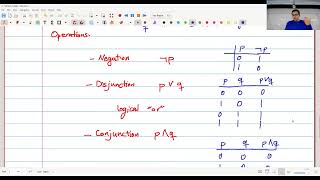 q
Operations:
p ¬p
0 1
1 0
- Negation ¬p
- Disjunction p ∨ q
p q p∨q
0 0 0
1 0 1
0 1 1
1 1 1
logical "or"
- Conjunction p ∧ q
p q p∧q
0 0 0